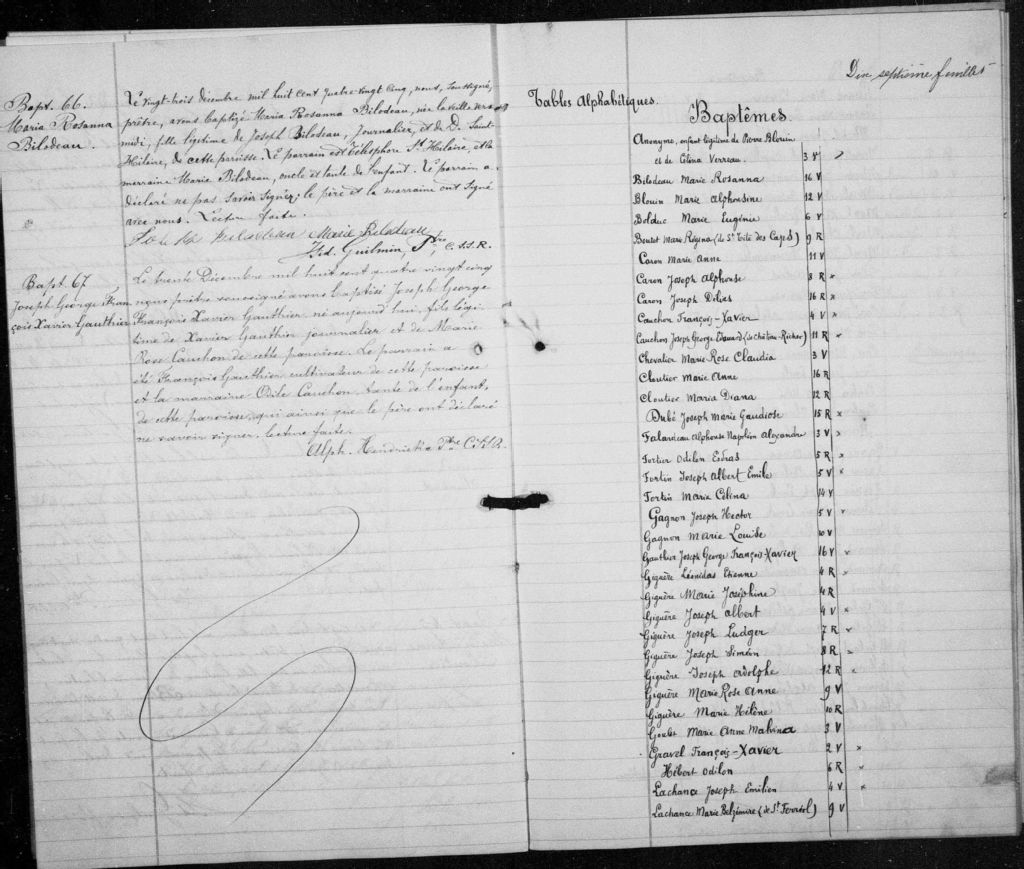 Bapt. 66.
Maria Rosanna
Bilodeau.
Le vingt-trois décembre mil huit cent quatre vingt cinq, nous, soussigné,
prêtre, avons baptizé Maria Rosanna Bilodeau, née la veille vers
midi, fille légitime de Joseph Bilodeau, journalier, et de D. Saint-
Hilaire, de cette paroisse. Le parrain est Télésphore St Hilaire, et la
marraine Marie Bilodeau, oncle et tante de l'enfant. Le parrain a
déclaré ne pas savoir signer; le père et la marraine ont signé
avec nous. Lecture faite.
Bilodeau Marie Bilodeau
Guilmin, Ptre, C.SS.R.
Bapt. 67,
Joseph George Fran
çois Xavier Gauthier
Le trente Décembre mil huit cent quatre vingt cinq
nous prêtre soussigné avons baptisé Joseph George
François Xavier Gauthier né aujourd'hui, fils légi
time de Xavier Gauthier journalier et de Marie
Rose Cauchon de cette paroisse. Le parrain a
été François Gauthier cultivateur de cette paroisse
et la marraine Odile Cauchon, tante de l'enfant,
de cette paroisse, qui ainsi que le père ont déclaré
ne savoir signer. lecture faite.
Alph. Ptre C.SS.R.
Dix septième feuillet
Tables Alphabétiques.
Baptêmes.
Anonyme, enfant légitime de Pierre Blouin
et de Célina Verreau. 3 V
Bilodeau Marie Rosanna 16 V
Blouin Marie Alphonsine 12 V
Bolduc Marie Eugénie 6 V
Boutet Marie Régina (de St Tite des Caps) 9 R
Caron Marie Anne 11 V
Caron Joseph Alphonse 8 R ×
Caron Joseph Délias 16 R ×
Cauchon François-Xavier 4 V ×
Cauchon Joseph George Edouard (de Château-Richer) 11 R ×
Chevalier Marie Rose Claudia 3 V
Cloutier Marie Anne 16 R
Cloutier Maria Diana 12 R
Dubé Joseph Marie Gaudiose 15 R ×
Falardeau Alphonse Napoléon Alexandre 3 V ×
Fortier Odilon Esdras 5 R ×
Fortin Joseph Albert Emile 5 V ×
Fortin Marie Célina 14 V
Gagnon Joseph Hector 5 V ×
Gagnon Marie Louise 10 V
Gauthier Joseph George François-Xavier 16 V ×
Giguère Léonidas Etienne 4 R ×
Giguère Marie Joséphine 4 R
Giguère Joseph Albert 4 V ×
Giguère Joseph Ludger 7 R ×
Giguère Joseph Siméon 8 R ×
Giguère Joseph Adolphe 12 R ×
Giguère Marie Rose Anne 9 V
Giguère Marie Hélène 10 R
Goulet Marie Anne Malvina 3 V
Gravel François-Xavier 2 V ×
Hébert Odilon 6 R ×
Lachance Joseph Emilien 4 V ×
Lachance Marie Belzémire (de St Ferréol) 9 V